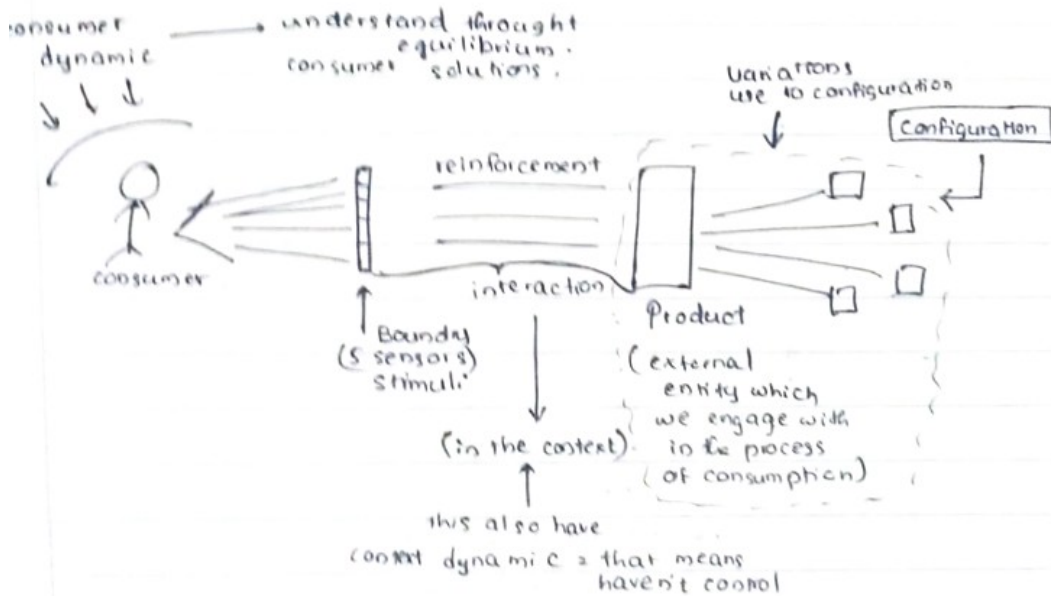 consumer
dynamic
understand throught
equilibrium.
consumer solutions.
variations
use to configuration
Configuration
reinforcement
consumer
interaction
Product
Boundry
(5 sensors)
stimuli
(external
entity which
we engage with
in the process
of consumption)
(in the context)
this also have
context dynamic = that means
haven't control